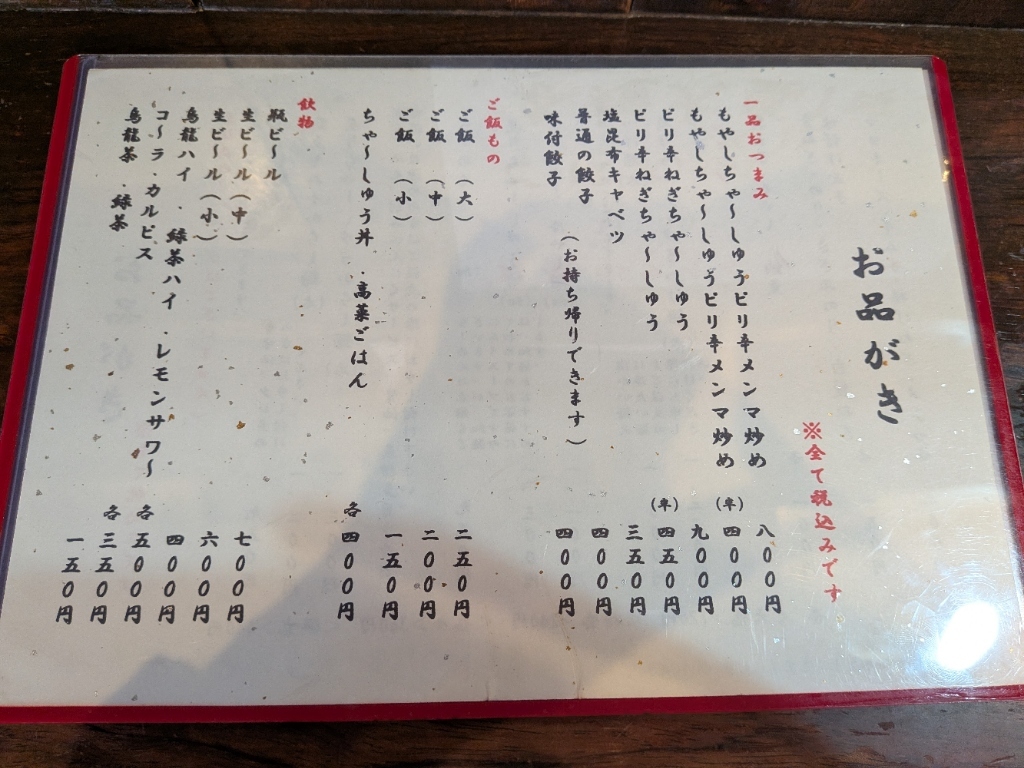 お品がき
※全て税込みです
一品おつまみ
もやしちゃ～しゅうピリ辛メンマ炒め 八00円
もやしちゃ～しゅうピリ辛メンマ炒め (半) 四00円
ピリ辛ねぎちゃ～しゅう 九00円
ピリ辛ねぎちゃ～しゅう (半) 四五0円
塩昆布キャベツ 三五0円
普通の餃子 (お持ち帰りできます) 四00円
味付餃子 四00円
ご飯もの
ご飯 (大) 二五0円
ご飯 (中) 二00円
ご飯 (小) 一五0円
ちゃ～しゅう丼 .高菜ごはん 各四00円
飲物
瓶ビ～ル 七00円
生ビ～ル(中) 六00円
生ビ～ル(小) 四00円
烏龍ハイ .緑茶ハイ .レモンサワ～ 各五00円
コ～ラ .カルピス 各三五0円
烏龍茶 .緑茶 一五0円